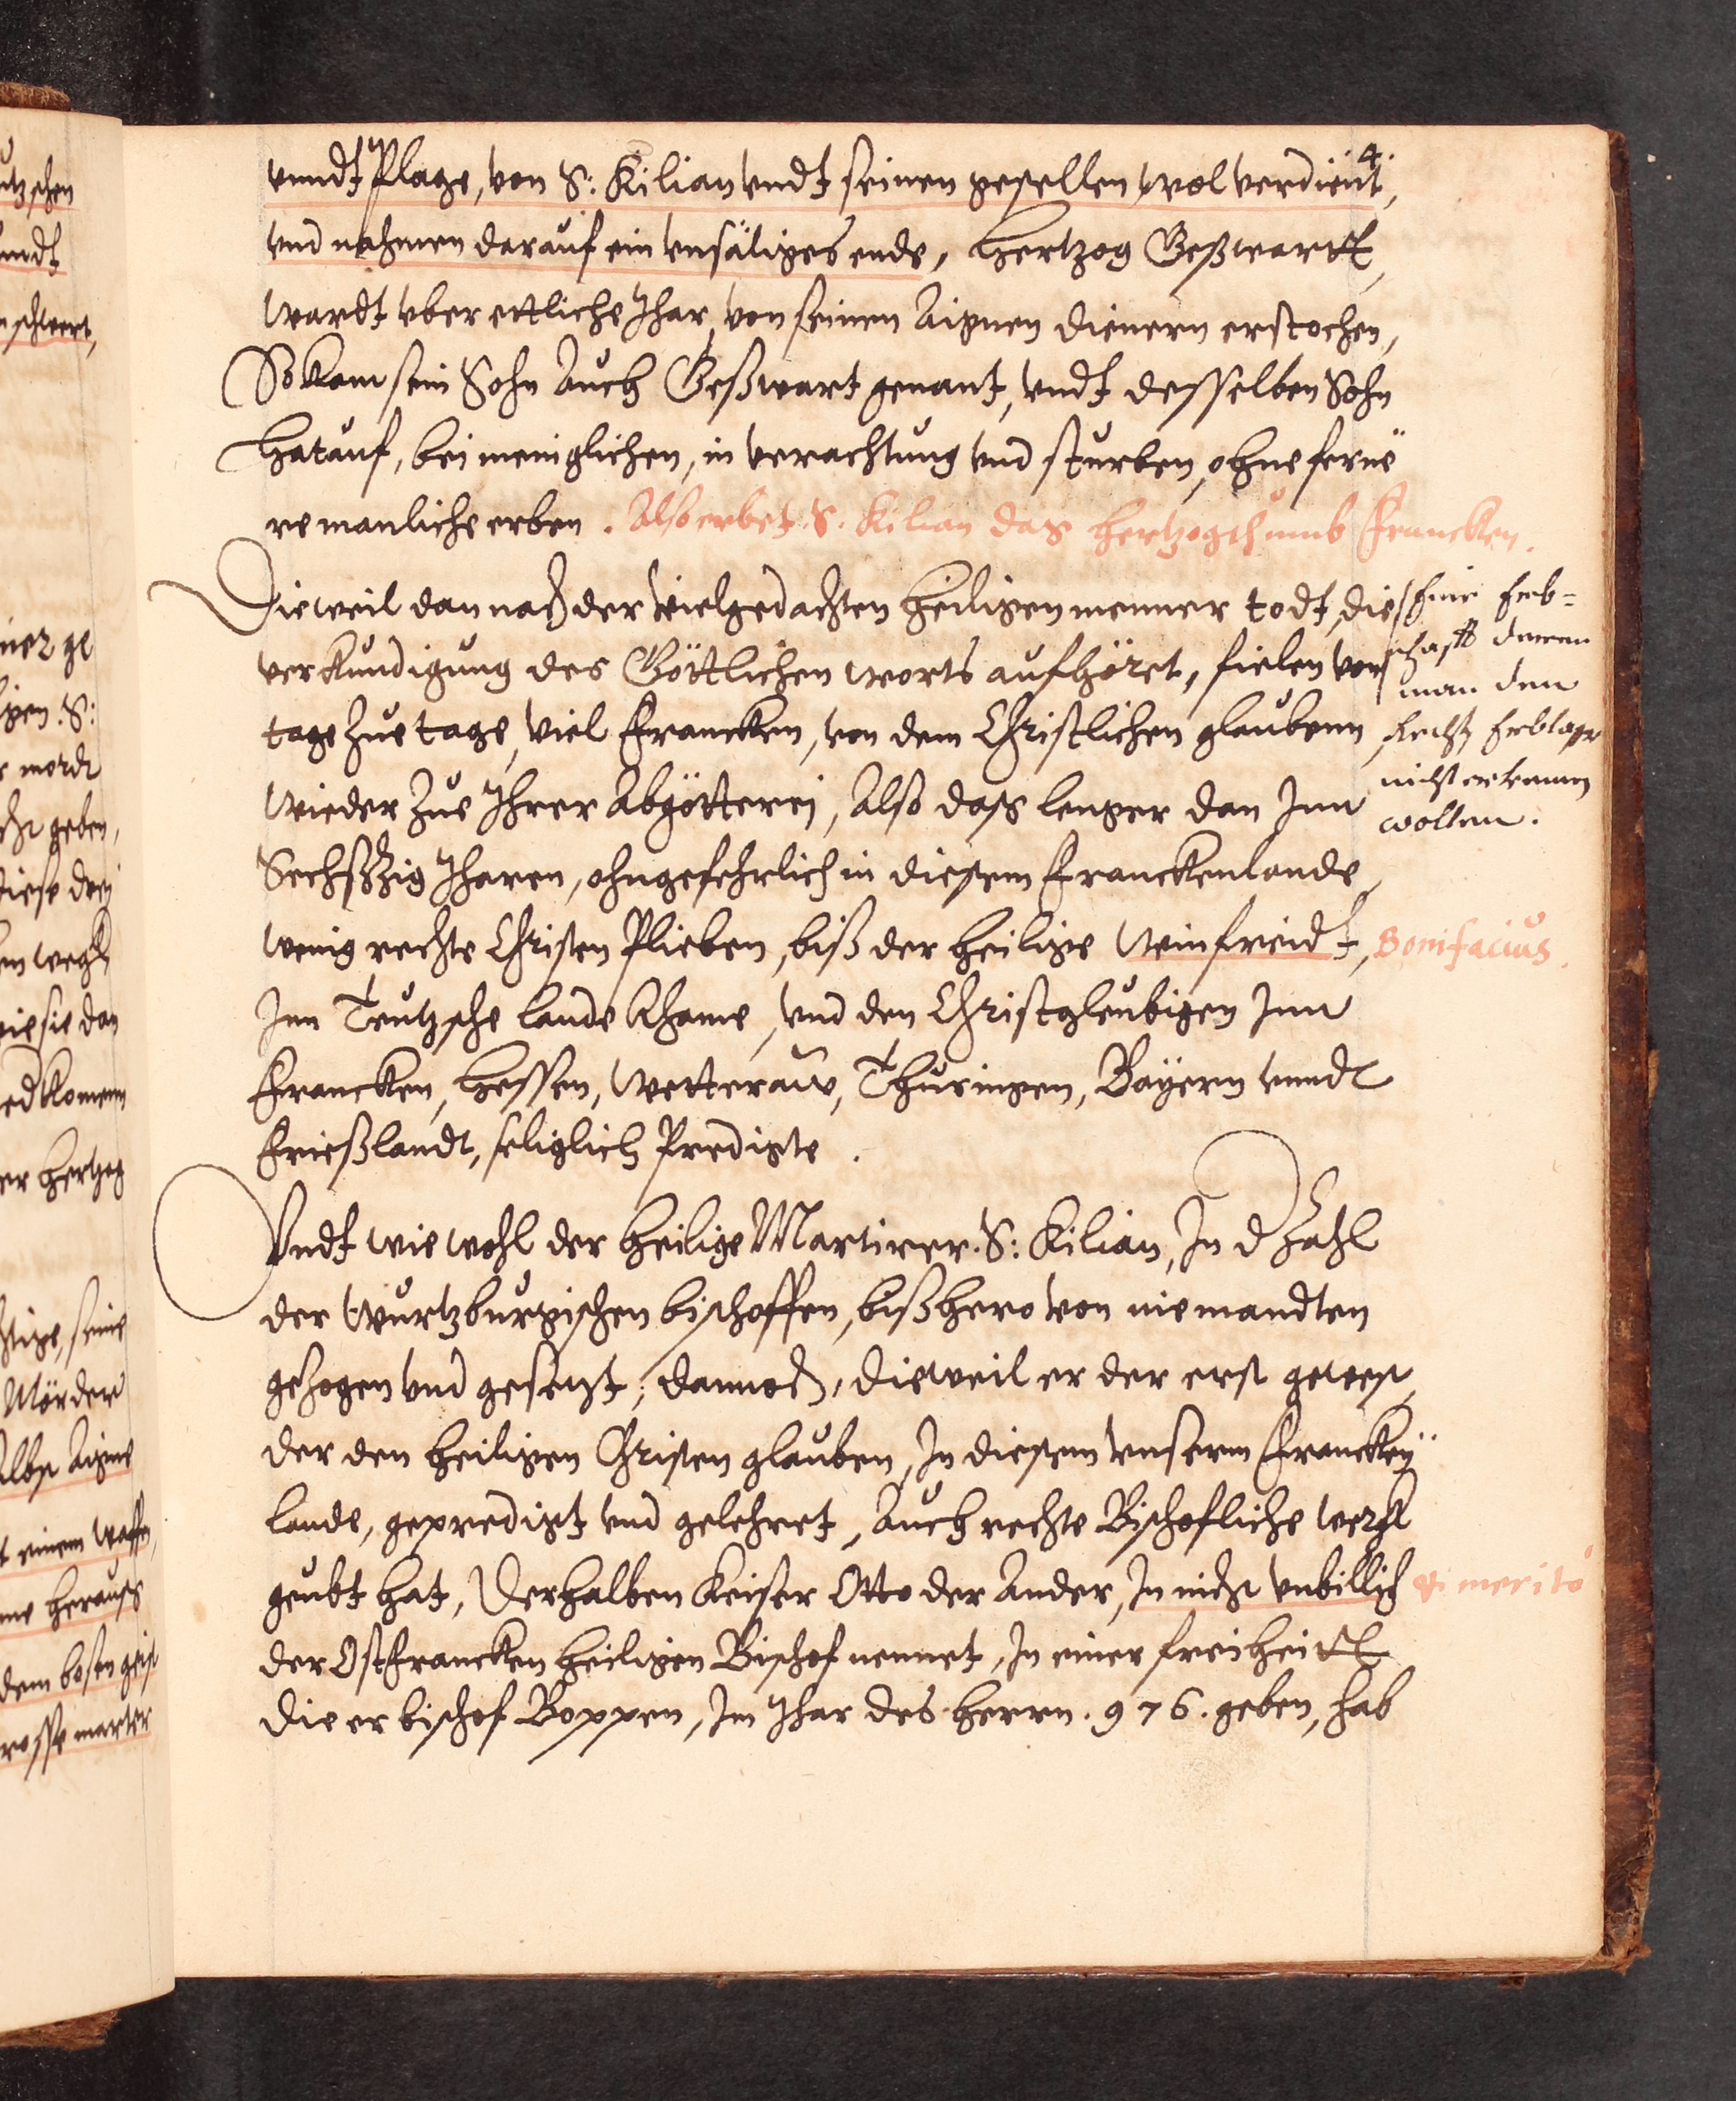 4.
vnndt Plage, von S: Kilian vndt seinen gesellen wol verdient,
vnd nahmen darauf ein vnsäliges ende, Hertzog Goßwartt,
wardt vber ettliche Jhar, von seinen Aignen dienern erstochen,
So kam sein Sohn Auch Goßwart genant, vndt desselben Sohn
Hatauf, bei meniglichen, in verachtung vnd sturben, ohne ferne
re manliche erben. Also erbet. S. Kilian das Hertzogthumb Francken.
Dieweil dan nach der vielgedachten heiligen menner todt, die
verkundigung des Göttlichen worts aufhöret, fielen von
tage zue tage, viel Francken, von dem Christlichen glaubenn
wieder zue Jhrer Abgötterej, Also dass lenger dan Jnn
Sechßzig Jharen, ohngefehrlich in diesem Franckenlande,
wenig rechte Christen Plieben, biß der heilige Winfreidt,
Jnn Teutzsche lande khame, vnd den Christgleubigen Jnn
Francken, Hessen, Wetteraw, Thüringen, Bayern vnndt
Frießlandt, seliglich Predigte.
Vndt wie wohl der heilige Martirer. S: Kilian, Jn d Zahl
der Wurtzburgischen bischoffen, bißhero von niemandten
gezogen vnd gesetzt, dannoch, dieweil er der erst gewest,
der den heiligen Christen glauben, Jn diesem vnserm Francken
lande, gepredigt vnd gelehret, Auch rechte Bischofliche werck
geubt hat, Derhalben Keiser Otto der Ander, Jn nicht vnbillich
der OstFrancken heiligen Bischof nennet, Jn einer freiheitt
die er bischof Boppen, Jm Jhar des Herrn. 976. geben, hab
Eine Erb=
schafft deren
man den
nicht erkennen
wollen.
Bonifacius.
& merito